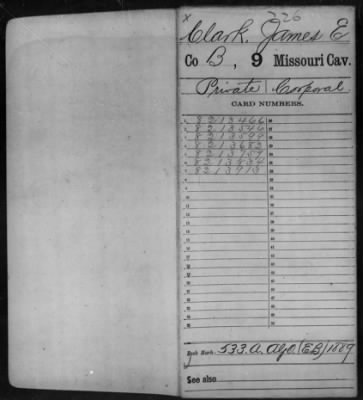 x 226
Clark, James E
Co B, 9 Missouri Cav.
Private | Corporal
CARD NUMBERS.
1 8213466
2 8213546
3 8213598
4 8213682
5 8213757
6 8213834
7 8213913
Book Mark: 533. A. A.G.O. (E B) 1889
See also